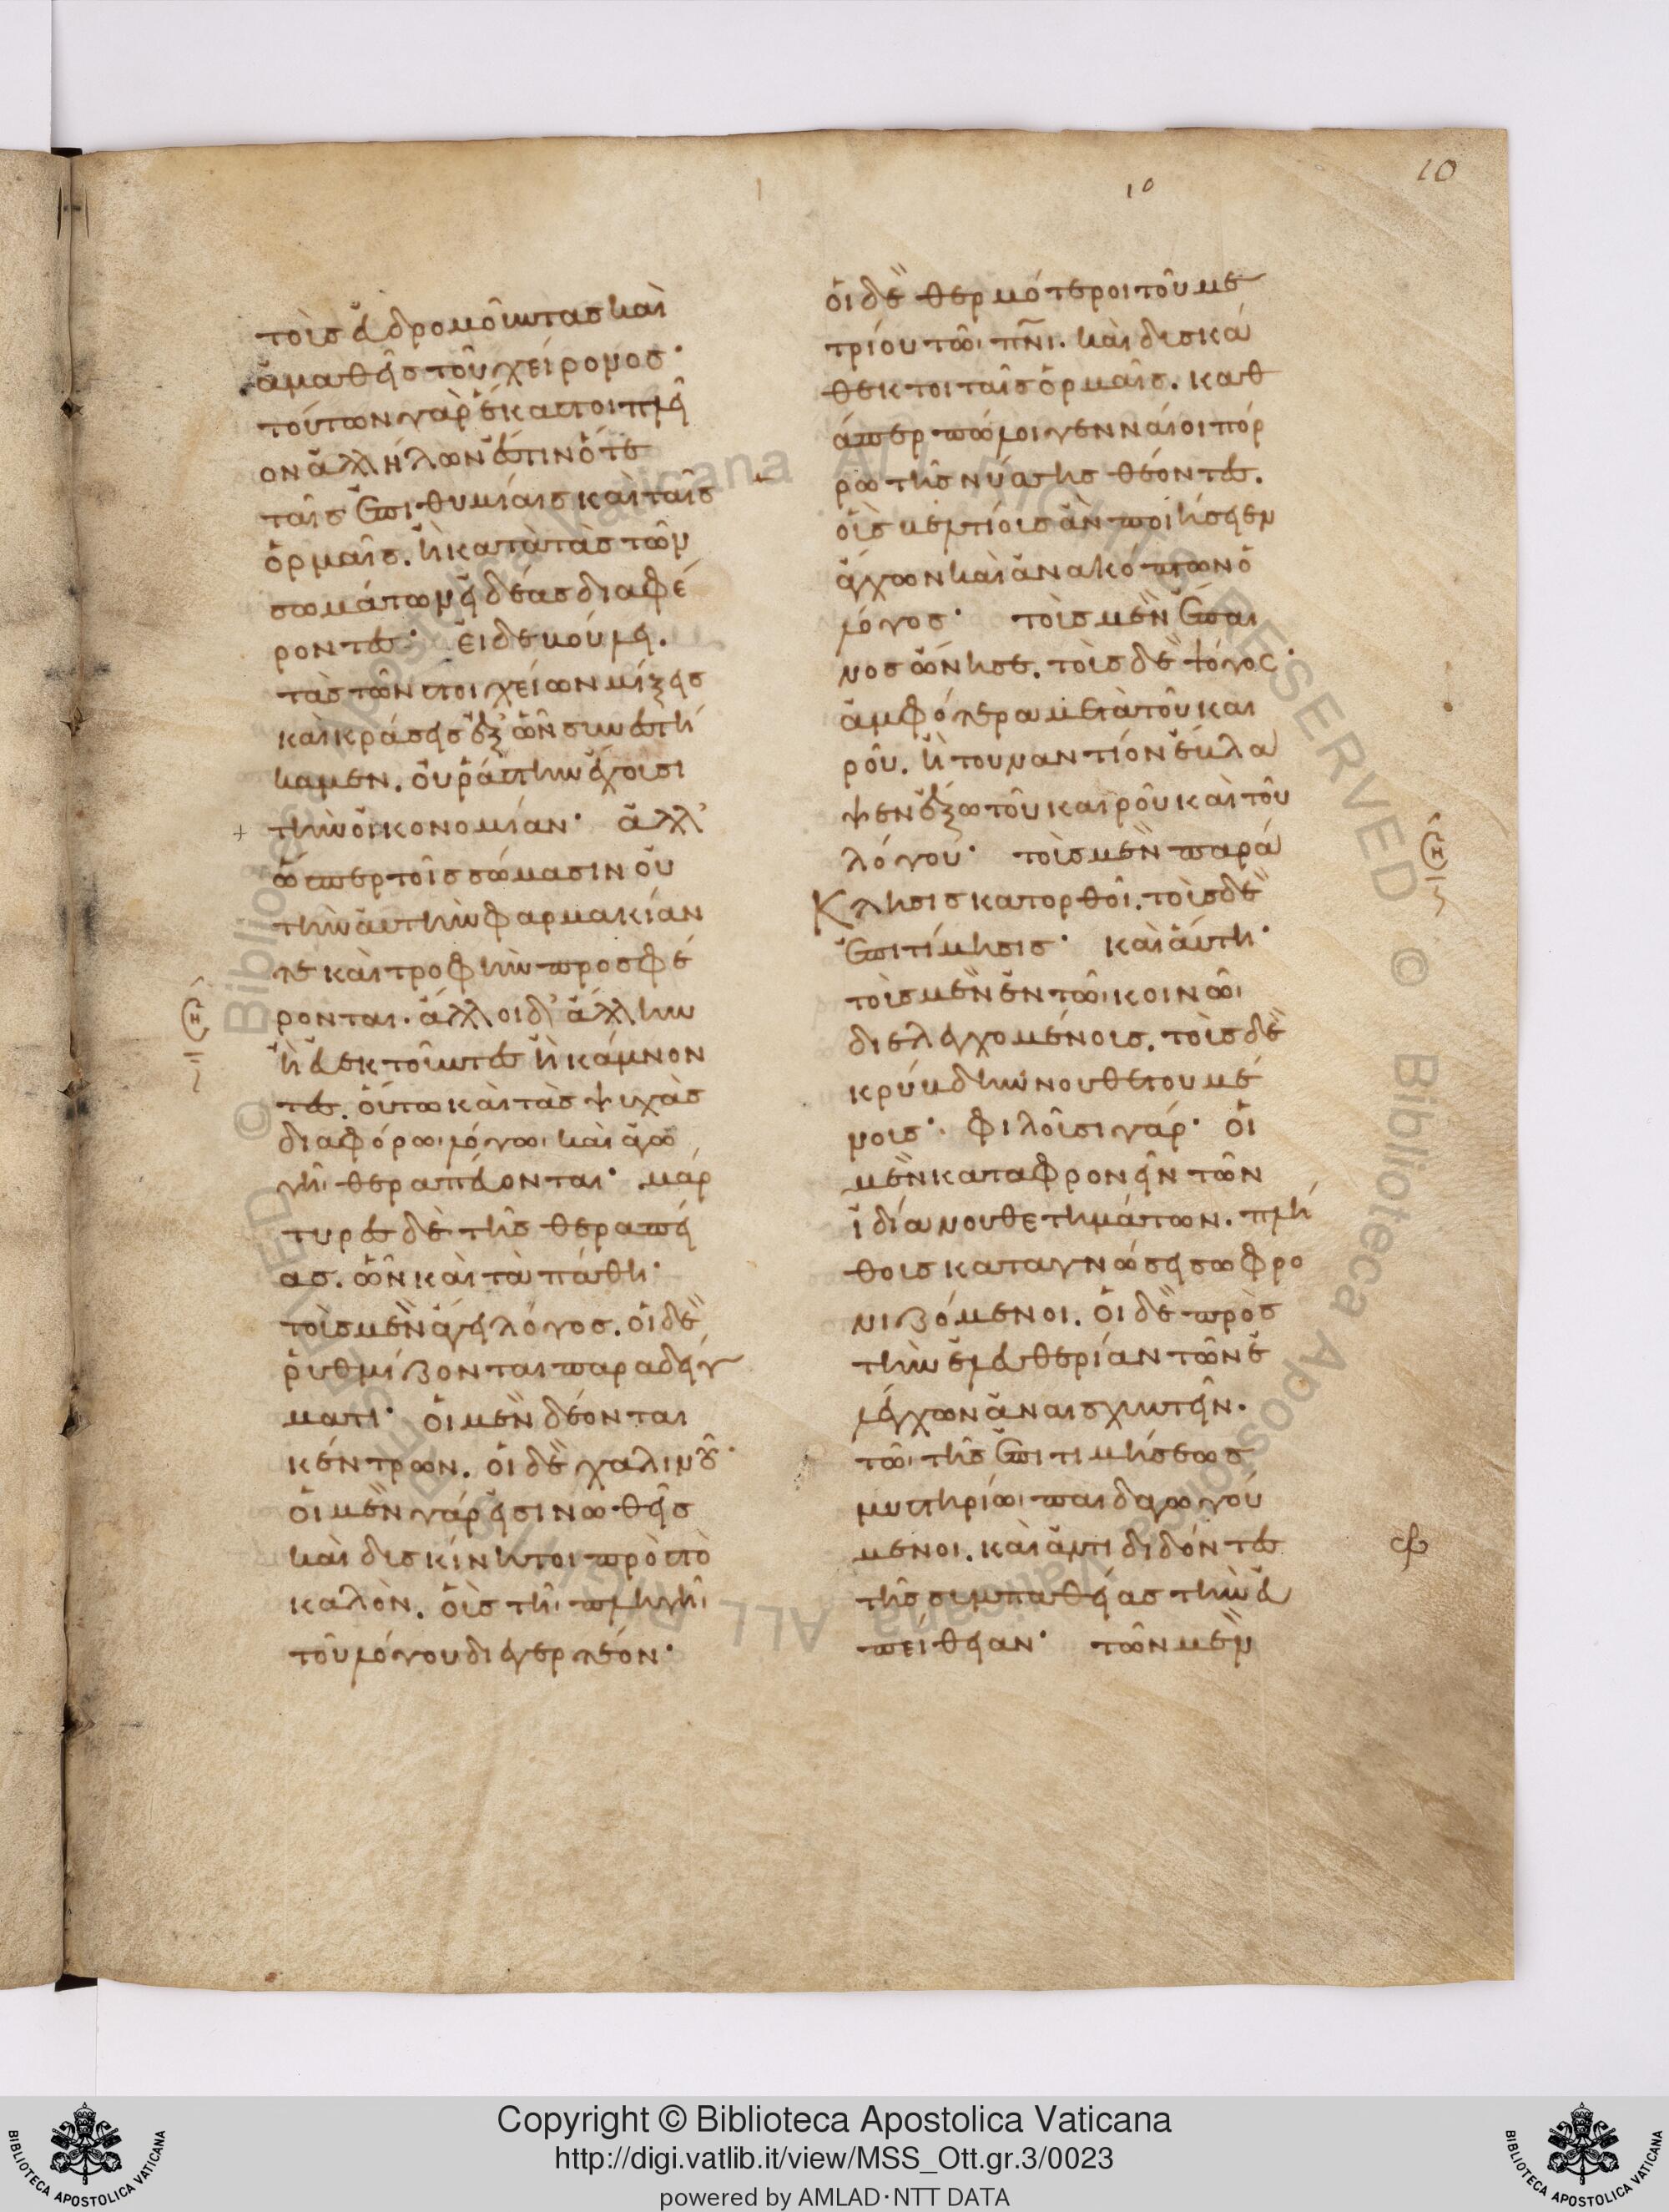 10
10
τοῖς εὐδρομοῦντας καὶ
ἀμαθεῖς τοῦ χείρονος·
τούτων γὰρ ἕκαστοι πλεῖ
ον ἀλλήλων ἔστιν ὅτε
ταῖς ἐπιθυμίαις καὶ ταῖς
ὁρμαῖς. ἢ κατὰ τὰς τῶν
σωμάτων εἰδέας διαφέ
ροντες· εἰ δὲ βούλει.
τὰς τῶν στοιχείων μίξεις
καὶ κράσεις ἐξ ὧν συνεστή
καμεν. οὐ ῥάστην ἔχουσι
τὴν οἰκονομίαν· ἀλλ'
ὥσπερ τοῖς σώμασιν οὐ
τὴν αὐτὴν φαρμακίαν
τε καὶ τροφὴν προσφέ
ρονται. ἄλλοι δ' ἄλλην
ἢ εὐεκτοῦντες ἢ κάμνον
τες. οὕτω καὶ τὰς ψυχὰς
διαφόρωι λόγωι καὶ ἀγω
γῆι θεραπεύονται· μάρ
τυρες δὲ τῆς θεραπεί
ας. ὧν καὶ τὰ πάθη·
τοῖς μὲν ἄγει λόγος. οἱ δὲ
ῥυθμίζονται παραδείγ
ματι· οἱ μὲν δέονται
κέντρων. οἱ δὲ χαλινοῦ·
οἱ μὲν γάρ εἰσι νωθεῖς
καὶ δισκίνητοι πρὸς τὸ
καλὸν. οἷς τῆι πληγῆι
τοῦ λόγου διεγερτέον·
οἱ δὲ θερμότεροι τοῦ με
τρίου τῶι πνι. καὶ δισκά
θεκτοι ταῖς ὁρμαῖς. καθ
άπερ πῶλοι γενναίοι πόρ
ρω τῆς νύσσης θέοντες.
οἷς βελτίοις ἂν ποιήσειεν
ἄγχων καὶ ἀνακόπτων ὁ
λόγος· τοῖς μὲν ἔπαι
νος ὤνησε. τοῖς δὲ ψόγος·
ἀμφότερα μετὰ τοῦ και
ροῦ. ἢ τουναντίον ἔβλα
ψεν ἔξω τοῦ καιροῦ καὶ τοῦ
λόγου· τοῖς μὲν παρά
Κλησις κατορθοῖ. τοῖς δὲ
ἐπιτίμησις· καὶ αὕτη·
τοῖς μὲν ἐν τῶι κοινῶι
διελεγχομένοις. τοῖς δὲ
κρύβδην νουθετουμέ
νοις· φιλοῦσι γάρ· οἱ
μὲν καταφρονεῖν τῶν
ἰδία νουθετημάτων. πλή
θοις καταγνώσει σωφρο
νιζόμενοι. οἱ δὲ πρὸς
τὴν ἐλευθερίαν τῶν ἐ
λέγχων ἀναισχυντεῖν.
τῶι τῆς ἐπιτιμήσεως
μυστηρίωι παιδαγωγού
μενοι. καὶ ἀντιδιδόντες
τῆς συμπαθείας τὴν εὐ
πείθειαν· τῶν μὲν
Copyright © Biblioteca Apostolica Vaticana
http://digi.vatlib.it/view/MSS_Ott.gr.3/0023
powered by AMLAD·NTT DATA